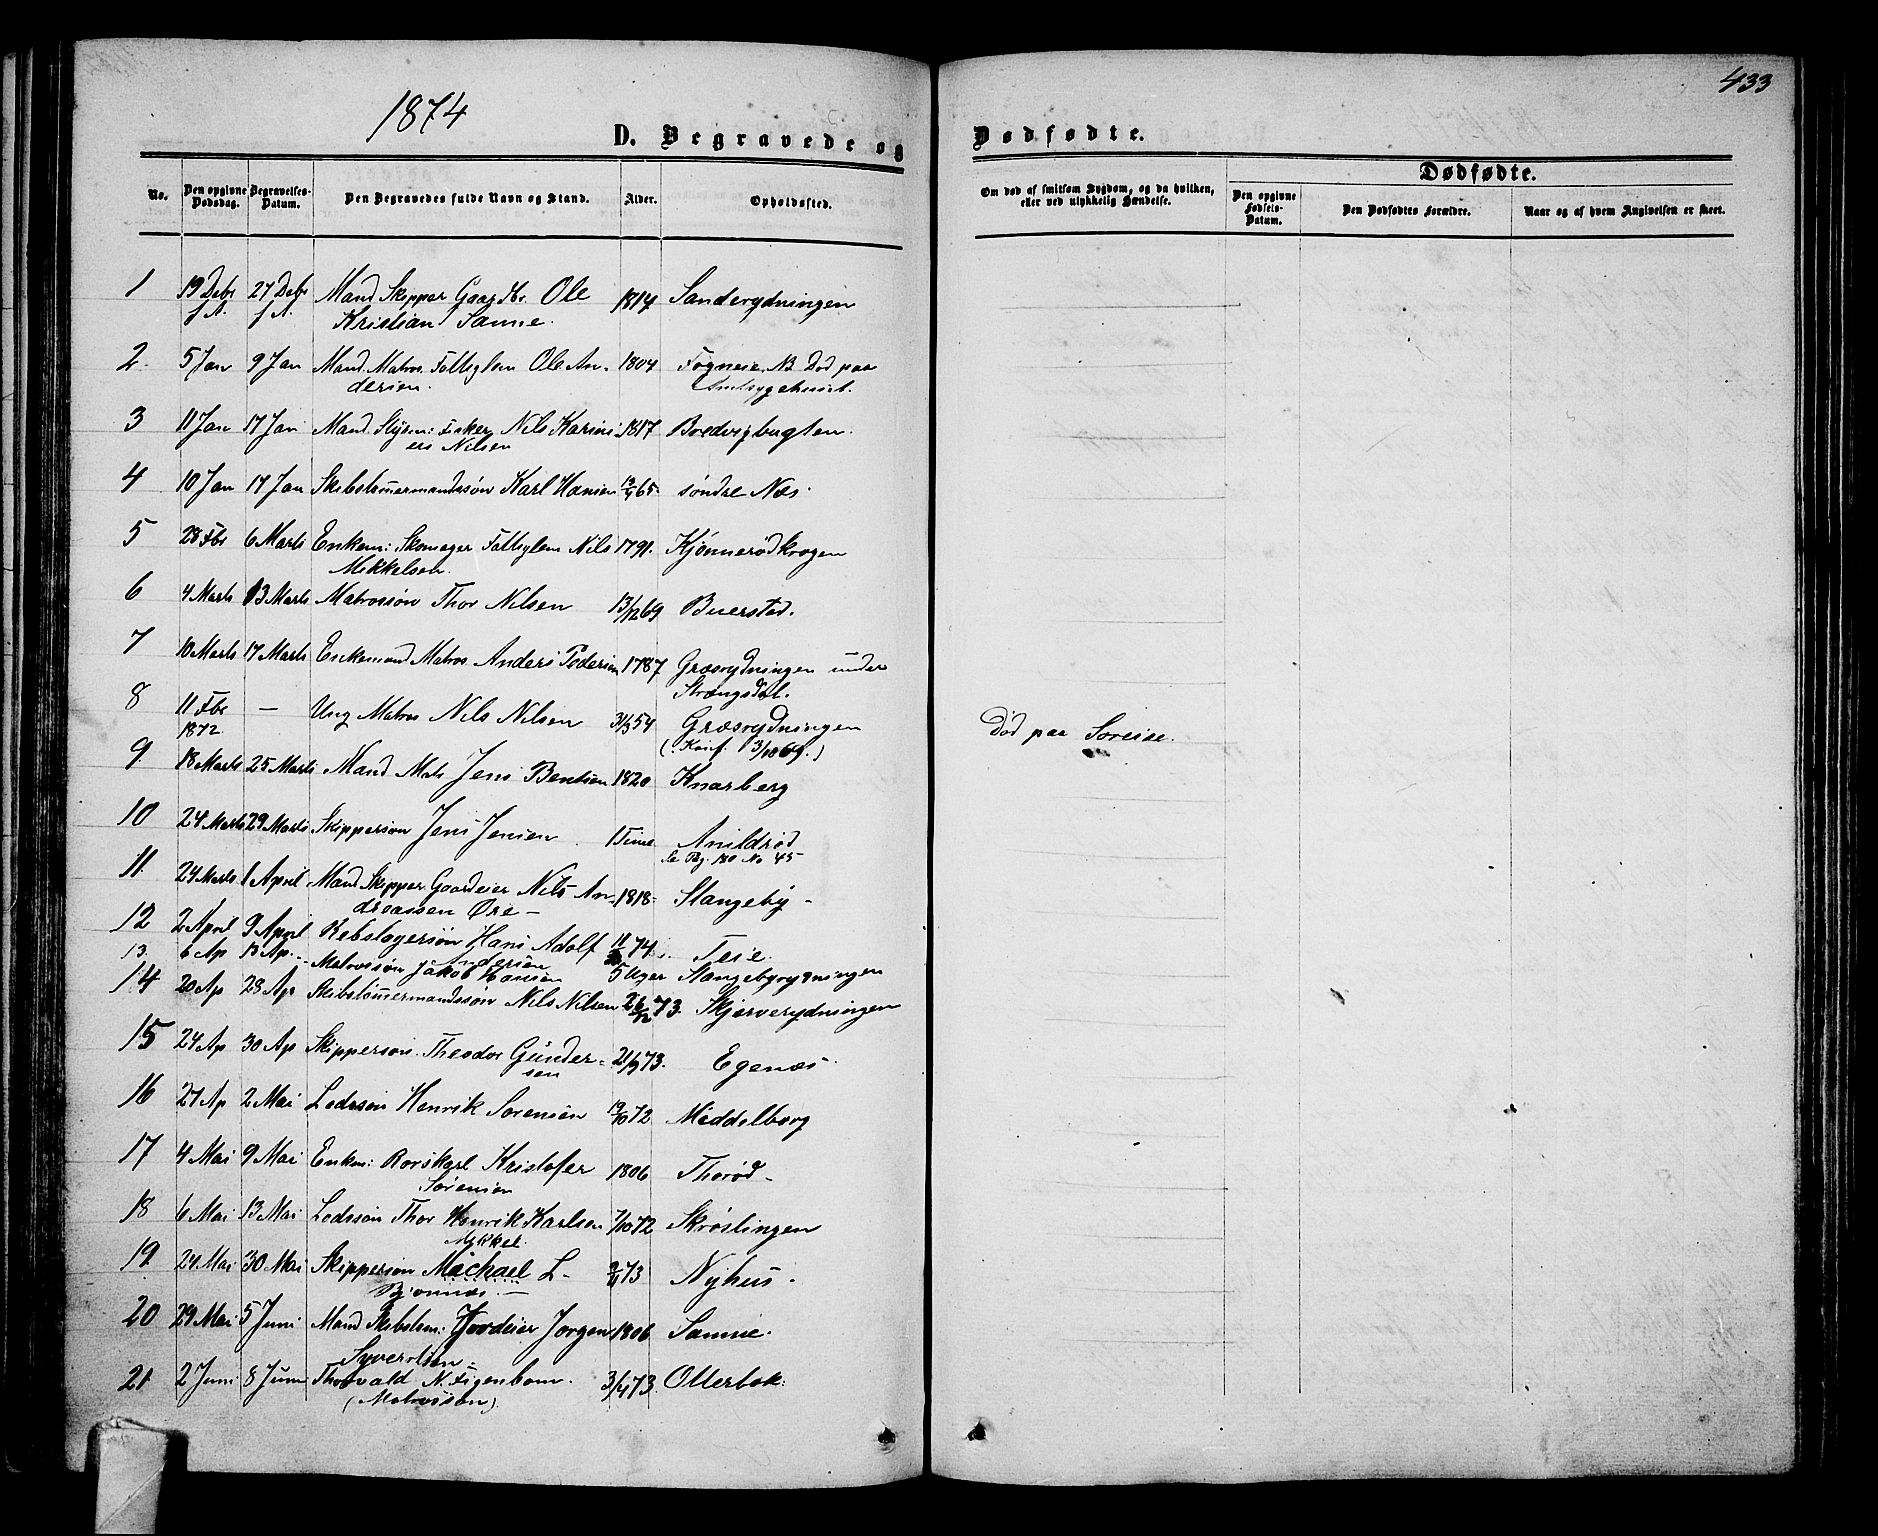 433
1874
D. Begravede og Dødfødte.
No. Den opgivne Dødsdag. Begravelses-Datum. Den Begravedes fulde Navn og Stand. Alder. Opholdssted.
Om død af smitsom Sygdom, og da hvilken, eller ved ulykkelig Hændelse.
Dødfødte.
Den opgivne Fødsels-Datum. Den Dødfødtes Forældre. Naar og af hvem Angivelsen er skeet.
1 19 Debr 27 Debr Mand Skipper Gaardbr. Ole 1814 Sanderydningen
f A. f A. Kristian Sanne.
2. 5 Jan 9 Jan Mand. Matros. Fattiglem Ole An- 1804 Fogneie. NB Død paa
dersen. Amtsygehuset.
3 11 Jan 17 Jan Mand. Nils Karini- 1817 Bredvigbugten.
us Nilsen
4 10 Jan 17 Jan Skibstømermandssøn Karl Hansen 65. søndre Næs.
5 28 Fbr 6 Marts Enkem: Skomager Fattiglem Nils 1791. Kjønnerødkrogen
Mikkelsen.
6 4 Marts 13 Marts Matrossøn Thor Nilsen 13/12 69 Buerstad.
7 10 Marts 17 Marts Enkemand Matros Anders Pedersen 1787 Græsrydningen under
Strængsdal.
8 11 Fbr — Ung Matros Nils Nilsen 31/3 54 Græsrydningen Død paa Soreise.
1872. (Konf. 3/10 69.)
9 18 Marts 25 Marts Mand Mats Jens Bentsen 1820 Knarberg
10 24 Marts 29 Marts Skippersøn Jens Jensen 1 Time Anildrød
Se Pag. 130 No 45
11. 24 Marts 1 April Mand Skipper Gaardeier Nils An- 1818- Stangeby -
dreassen Øre —
12 2 April 9 April Rebslagersøn Hans Adolf 74. Teie.
Andersen
13. 6 Ap 13 Ap. Matrossøn Jakob Hansen 5 Uger Stangebyrydningen
14 20 Ap 28 Ap Skibstømermandssøn Nils Nilsen 26/12 73. Skjerverydningen
15 24 Ap 30 Ap Skippersøn. Theodor Gunder- 21/9 73. Egenæs.
sen
16 27 Ap 2 Mai Lodssøn Henrik Sørensen 19/10 72 Middelborg
17 4 Mai 9 Mai Enkm: Rorskarl Kristofer 1806 Thorød -
Sørensen
18 6 Mai 13 Mai Lodssøn Thor Henrik Karlsen 7/10 72 Skrøslingen
Mikkel
19 24 Mai 30 Mai Skippersøn Michael L- 73 Nyhus.
Bjønnes. —
20 29 Mai 5 Juni Mand Skibstøm: Jordeier Jørgen 1806 Sanne.
Syvertsen.
21 2 Juni 8 Juni Thorvald N. Figenbom. 3/4 73. Ollerbok.
(Matrossøn).